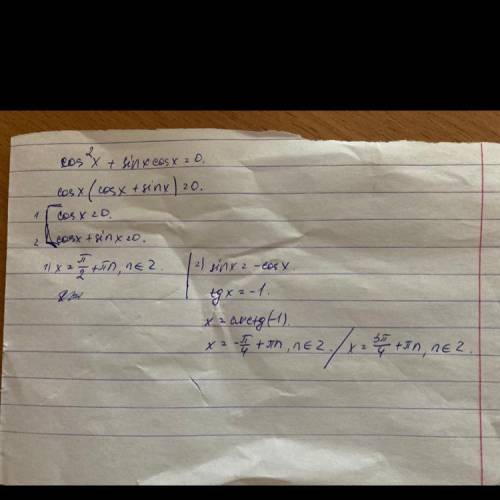 cos²x + sinx cosx = 0.
cosx(cosx + sinx) = 0.
1 [cosx = 0.
2 [cosx + sinx = 0.
1) x = π/2 + πn, n ∈ Z.
2) sinx = -cosx.
tgx = -1.
x = arctg(-1).
x = -π/4 + πn, n ∈ Z. / x = 3π/4 + πn, n ∈ Z.